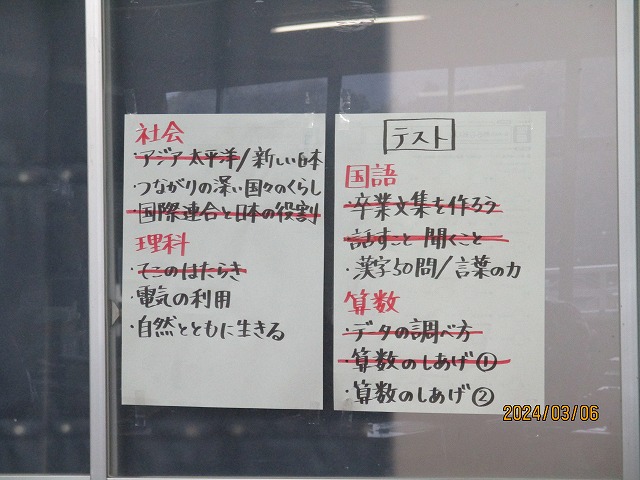 テスト
国語
・卒業文集を作ろう
・話すこと 聞くこと
・漢字50問/言葉の力
算数
・データの調べ方
・算数のしあげ①
・算数のしあげ②
社会
・アジア太平洋/新しい日本
・つながりの深い国々のくらし
・国際連合と日本の役割
理科
・てこのはたらき
・電気の利用
・自然とともに生きる
2024/03/06